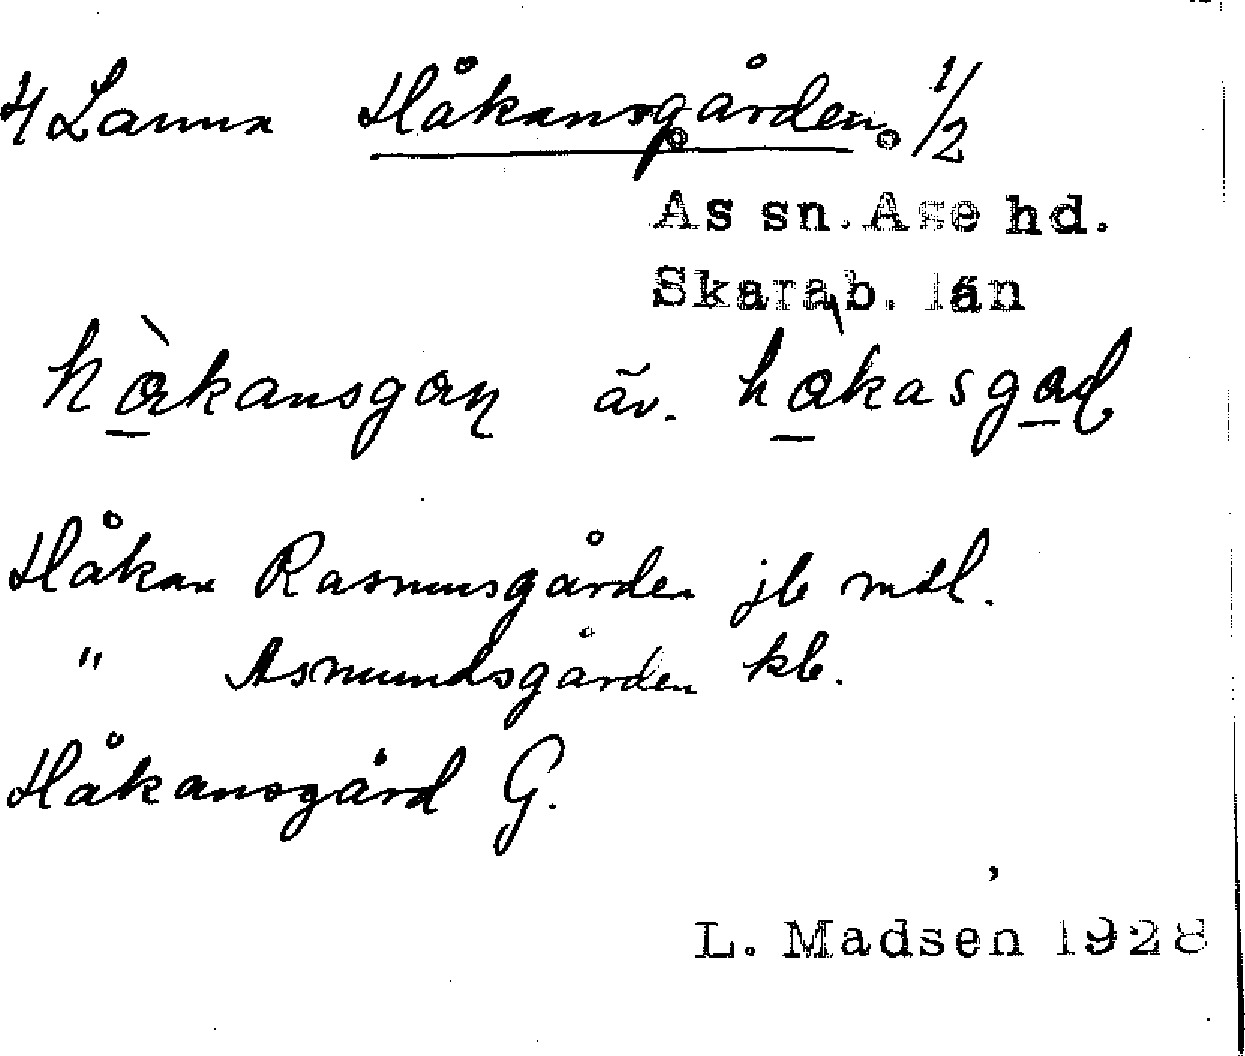 4 Lanna Håkansgården 1/2
Ås sn. Åse hd.
Skarab. län
hàkansgaṇ äv. hàkasgaḍ
Håkan Rasmusgården jb mtl.
" Asmundsgården kb.
Håkansgård G.
L. Madsen 1928